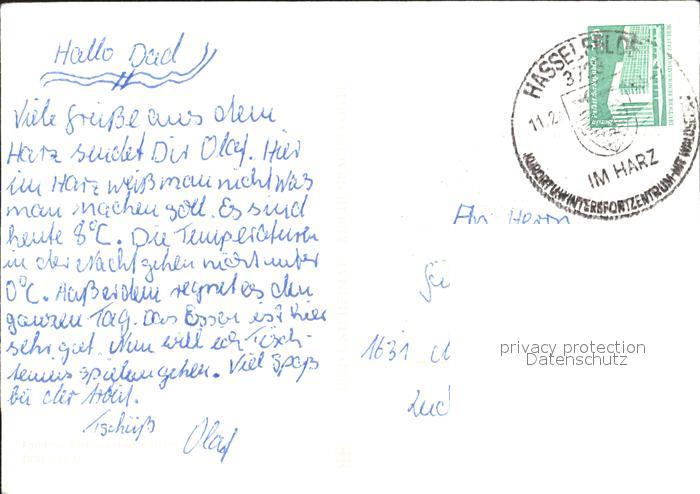 Hallo Dad
Viele Grüße aus dem
Harz sendet Dir Olaf. Hier
im Harz weiß man nicht was
man machen soll. Es sind
heute 8°C. Die Temperaturen
in der Nacht gehen nicht unter
0°C. Außerdem regnet es den
ganzen Tag. Das Essen ist hier
sehr gut. Nun will ich Tisch-
tennis spielen gehen. Viel Spaß
bei der Arbeit.
Tschüß
Olaf
HASSELFELDE
37
11.2.
IM HARZ
KURORT U. WINTERSPORTZENTRUM MIT
An Herrn
1631
privacy protection
Datenschutz